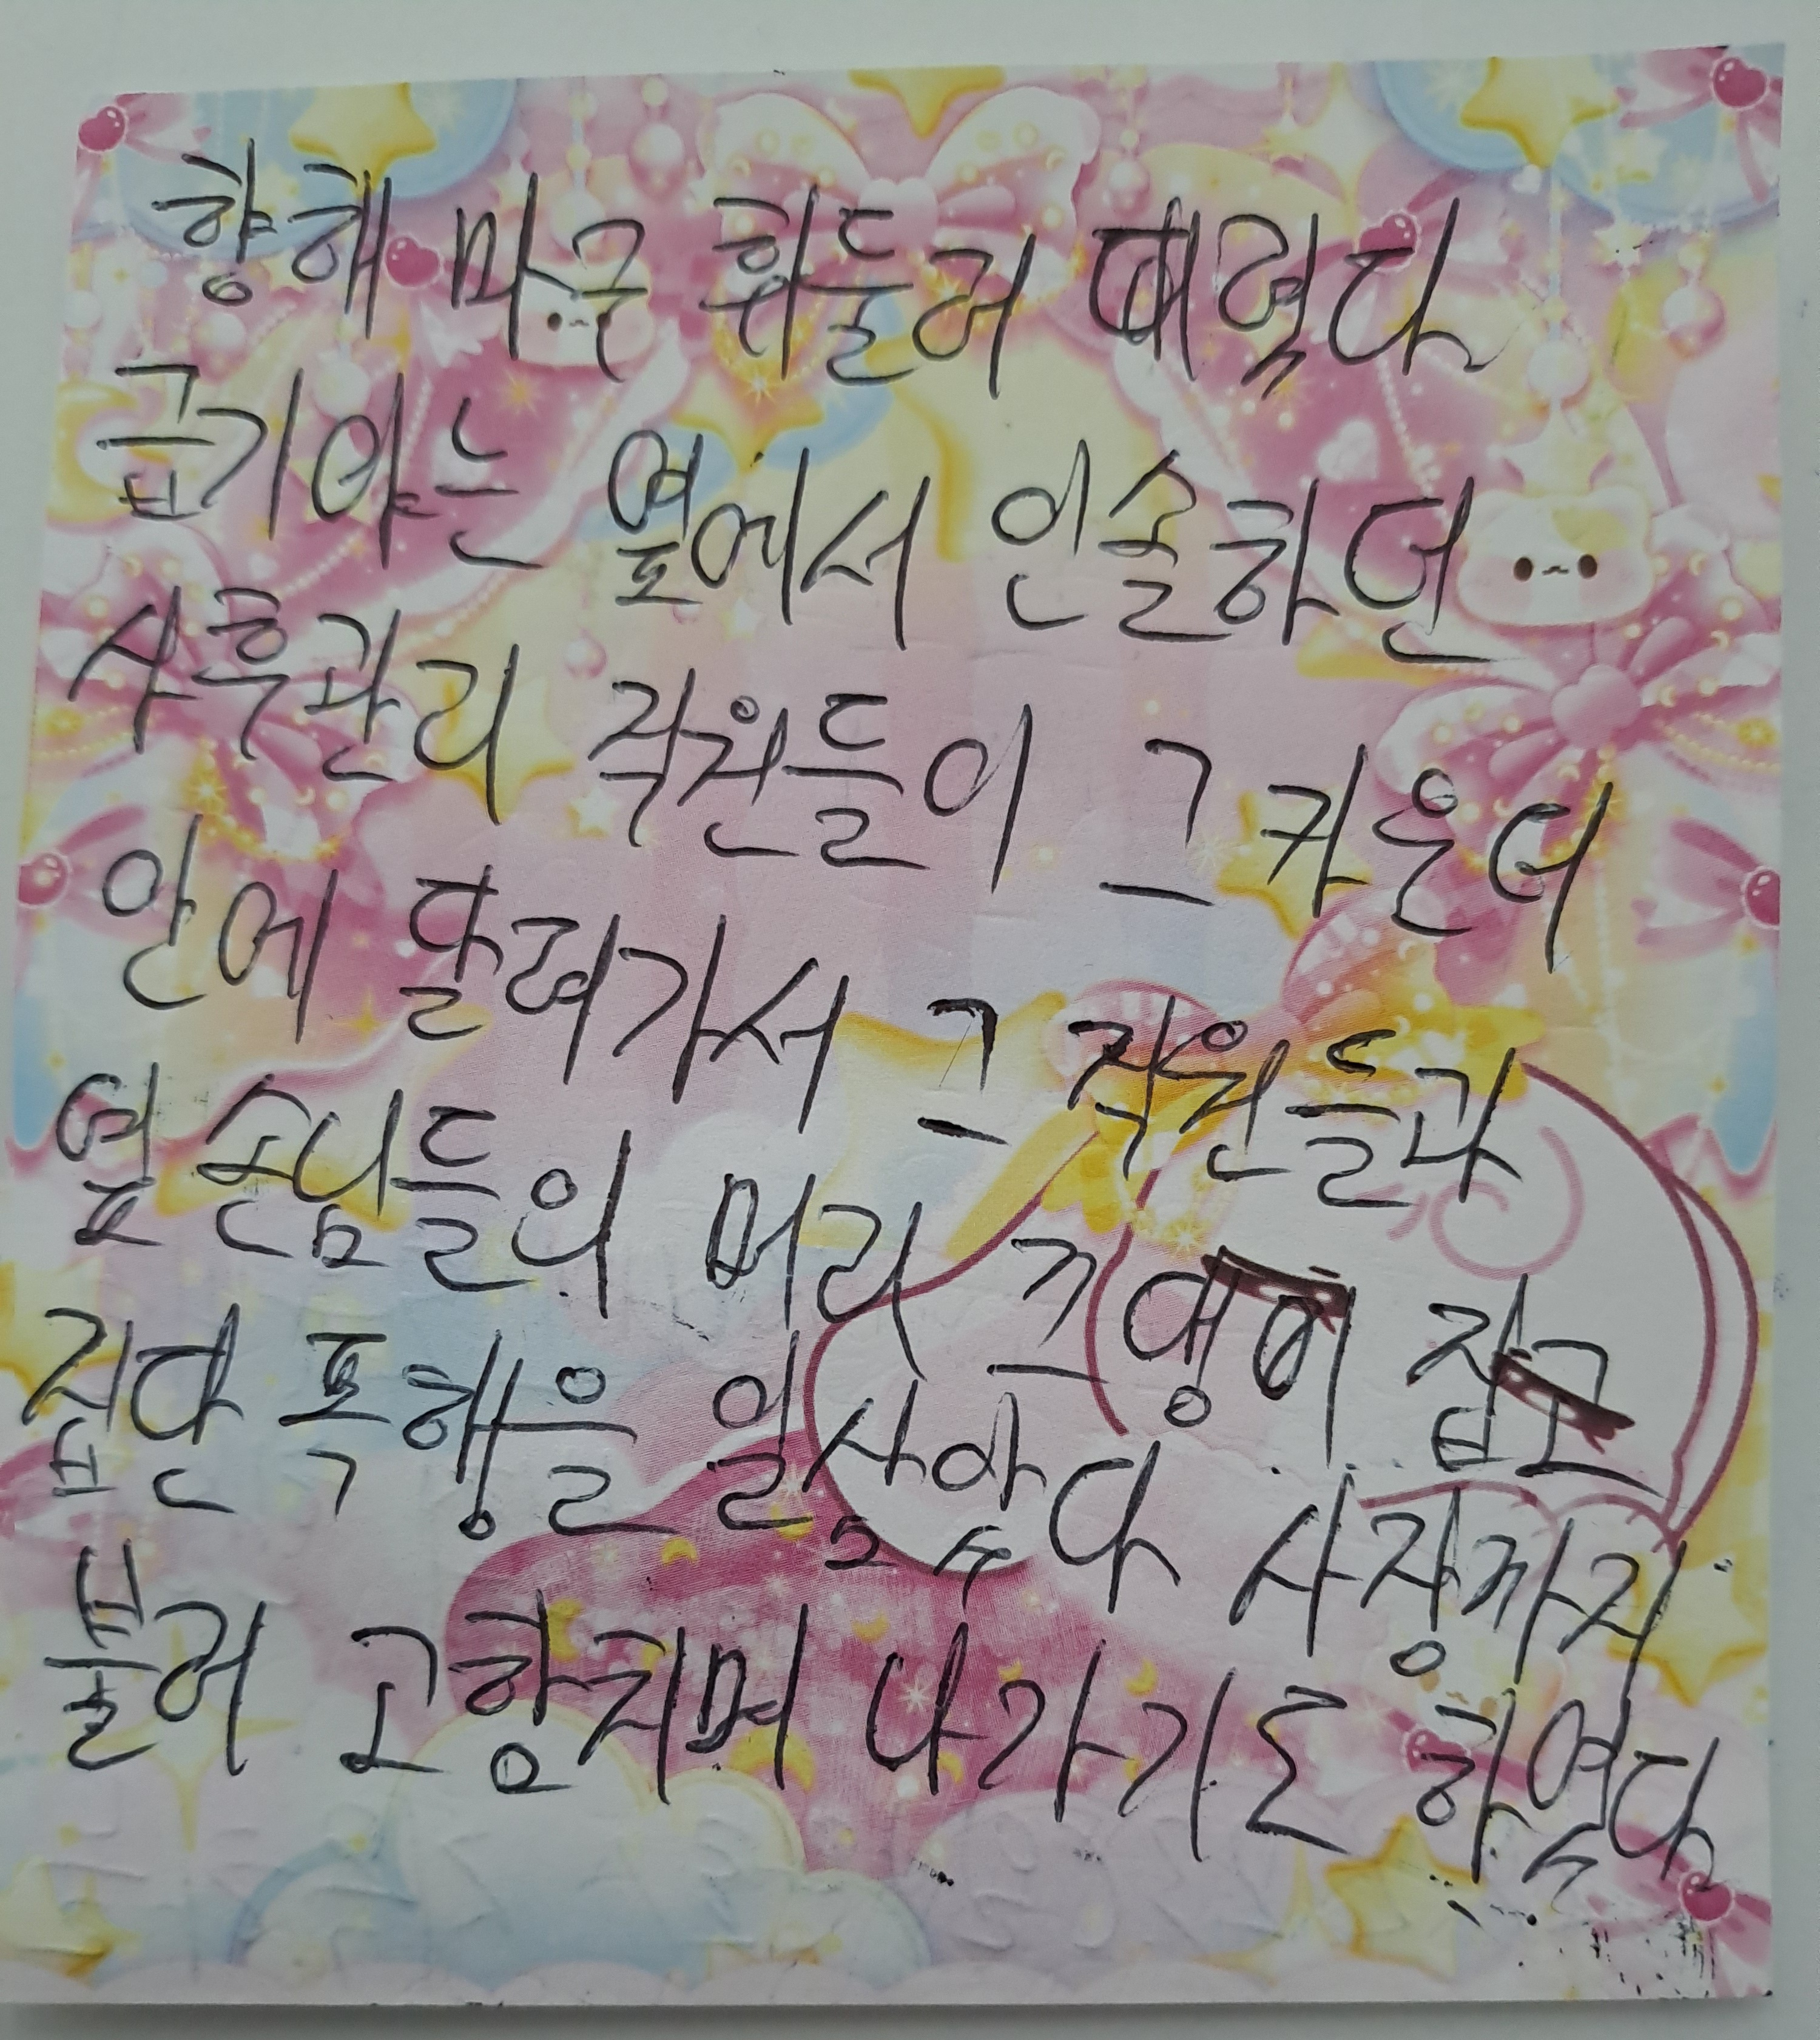 향해 마구 휘둘러 때렸다
급기야는 옆에서 인솔하던
사후관리 직원들이 그 카운터
안에 달려가서 그 직원들과
옆 손님들의 머리 끄댕이 잡고
집단 폭행을 일삼았다 사장까지
불러 고함치며 나가기도 하였다